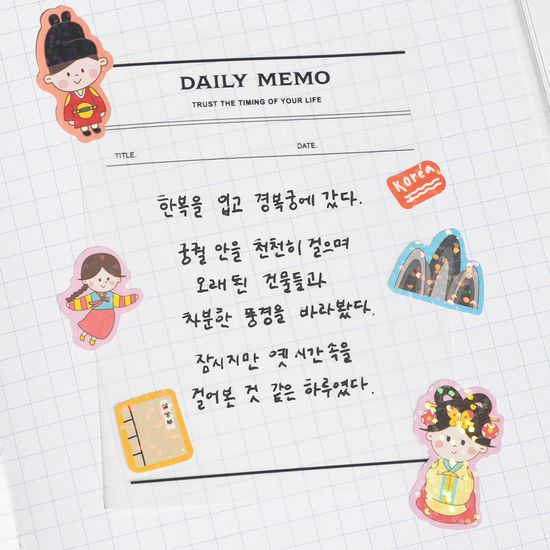 DAILY MEMO
TRUST THE TIMING OF YOUR LIFE
TITLE.
DATE.
Korea
한복을 입고 경복궁에 갔다.
궁궐 안을 천천히 걸으며
오래된 건물들과
차분한 풍경을 바라봤다.
잠시지만 옛 시간 속을
걸어본 것 같은 하루였다.